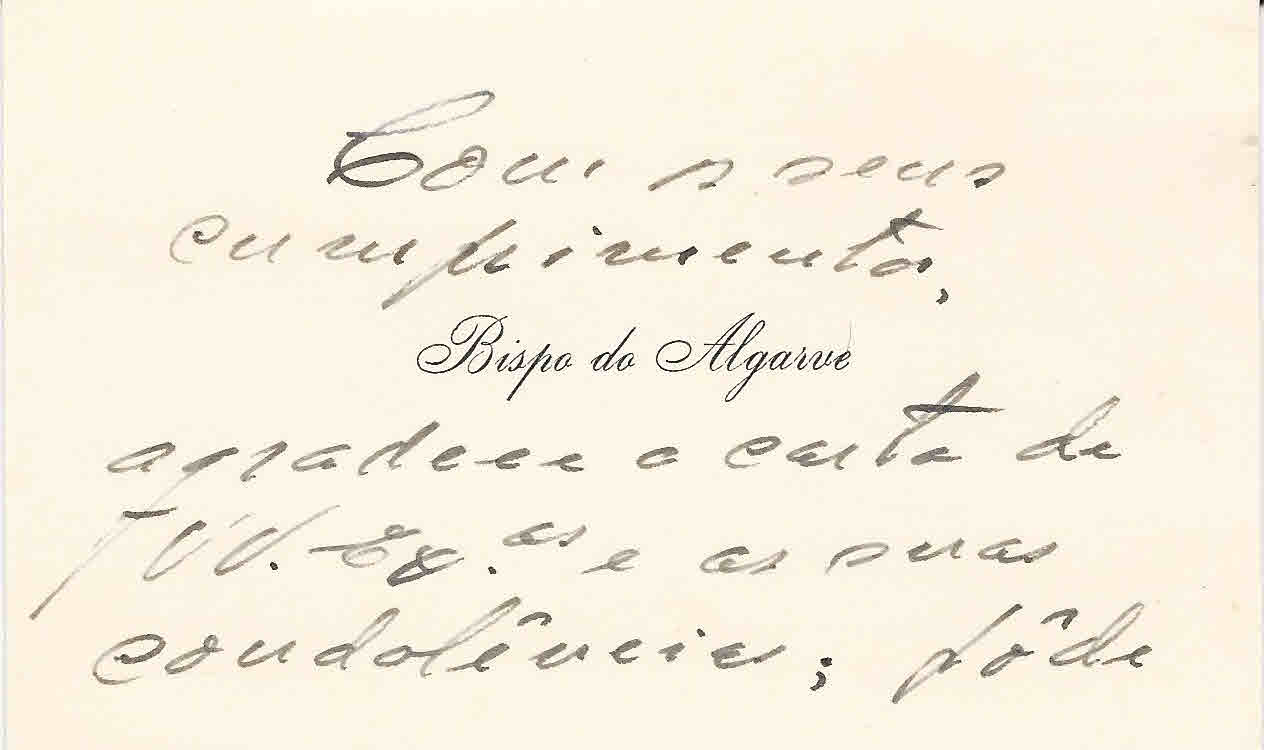 Com os seus
cumprimentos,
Bispo do Algarve
agradece a carta de
VV. Ex.as e as suas
condolências; pôde